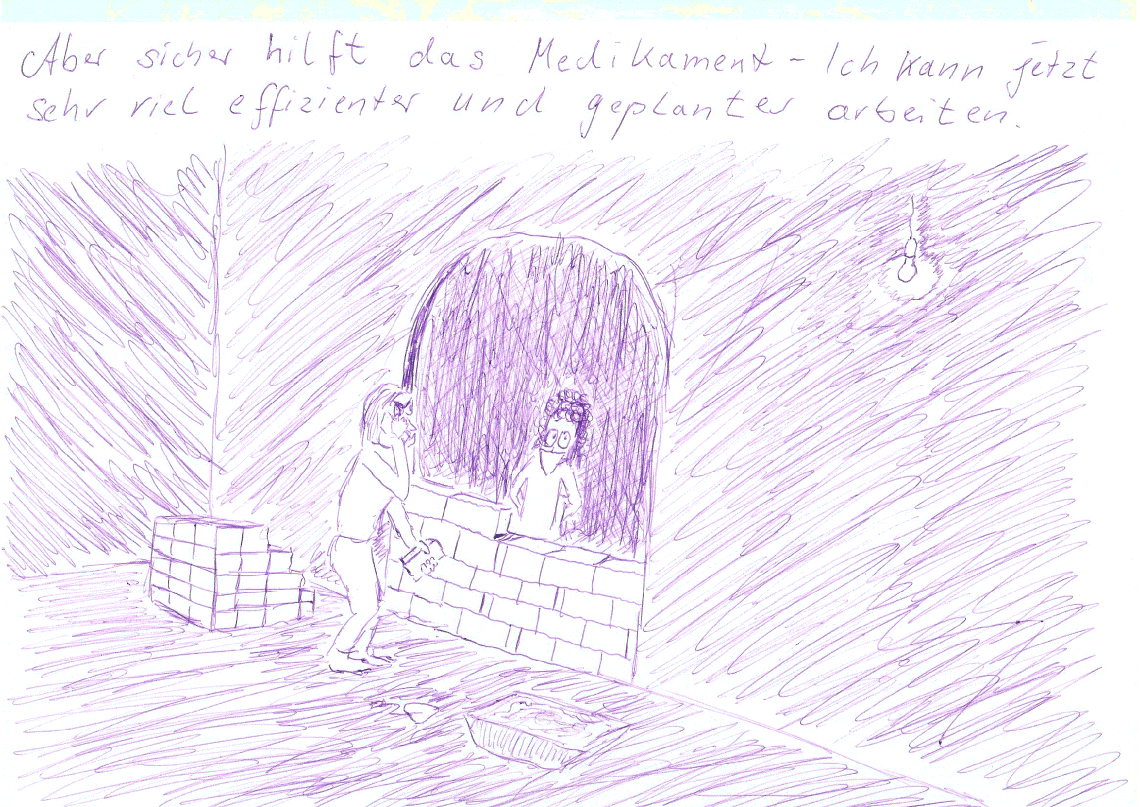 Aber sicher hilft das Medikament - Ich kann jetzt
sehr viel effizienter und geplanter arbeiten.